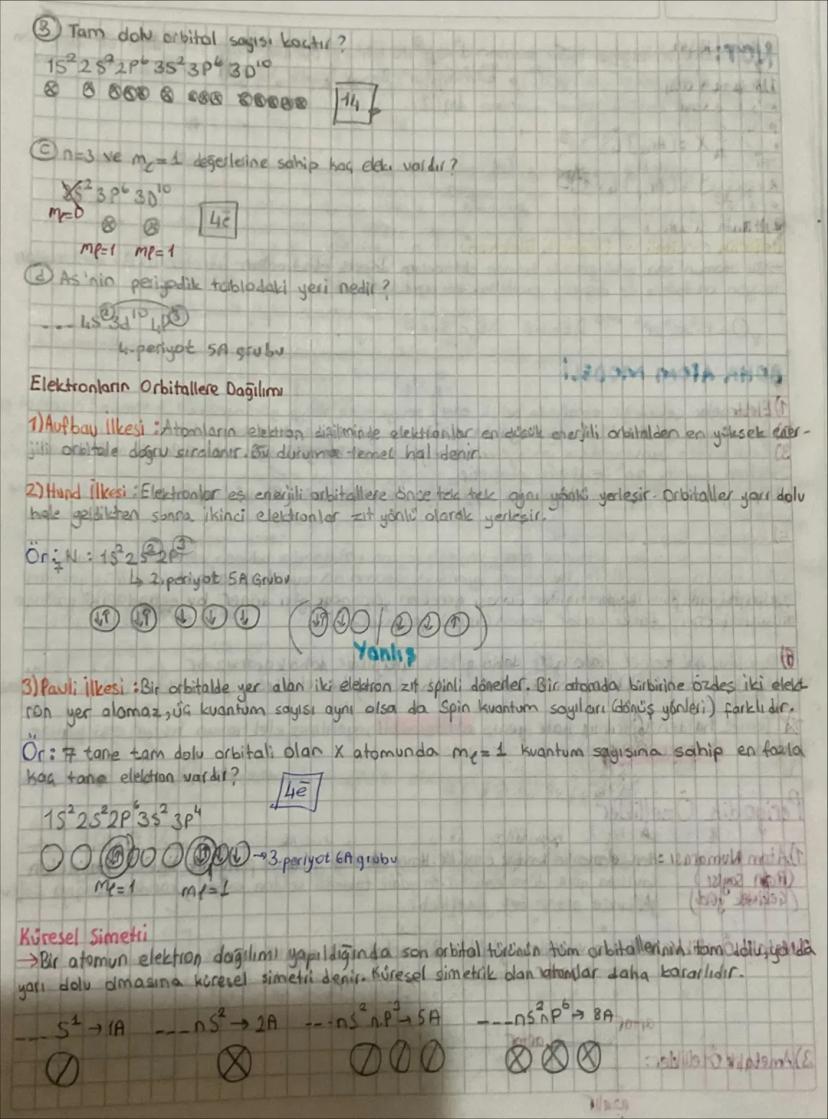 B Tam dolu orbital sayısı kaçtır?
1s² 2s² 2p⁶ 3s² 3p⁶ 3D¹⁰
14
C n=3 ve mℓ=1 değerlerine sahip kaç elek. vardır?
3s² 3p⁶ 3D¹⁰
mℓ=0
4e⁻
mℓ=1 mℓ=1
d As'nin periyodik tablodaki yeri nedir?
... 4s² 3d¹⁰ 4p³
4. periyot 5A grubu
Elektronların Orbitallere Dağılımı
1) Aufbau İlkesi: Atomların elektron diziliminde elektronlar en düşük enerjili orbitalden en yüksek ener-
jili orbitale doğru sıralanır. Bu duruma temel hal denir.
2) Hund İlkesi: Elektronlar eş enerjili orbitallere önce tek tek aynı yönlü yerleşir. Orbitaller yarı dolu
hale geldikten sonra ikinci elektronlar zıt yönlü olarak yerleşir.
Ör: ₇N : 1s² 2s² 2p³
↳ 2. periyot 5A Grubu
Yanlış
3) Pauli İlkesi: Bir orbitalde yer alan iki elektron zıt spinli dönerler. Bir atomda birbirine özdeş iki elekt-
ron yer alamaz, üç kuantum sayısı aynı olsa da Spin kuantum sayıları (dönüş yönleri) farklıdır.
Ör: 7 tane tam dolu orbitali olan X atomunda mℓ=1 kuantum sayısına sahip en fazla
kaç tane elektron vardır?
4e⁻
1s² 2s² 2p⁶ 3s² 3p⁴
→ 3. periyot 6A grubu
mℓ=1 mℓ=1
Küresel Simetri
→ Bir atomun elektron dağılımı yapıldığında son orbital türünün tüm orbitallerinin tam dolu, ya da
yarı dolu olmasına küresel simetri denir. Küresel simetrik olan atomlar daha kararlıdır.
... s¹ → 1A ... ns² → 2A ... ns² np³ → 5A ... ns² np⁶ → 8A